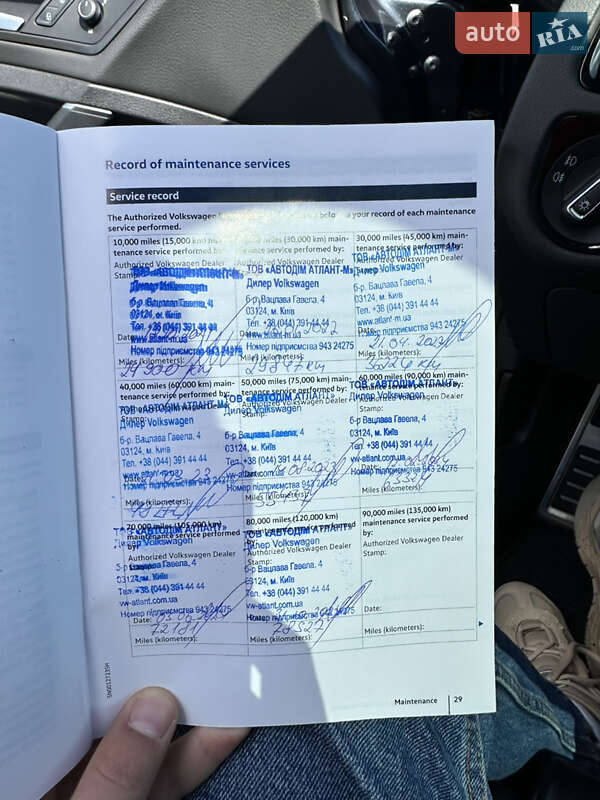 auto RIA.com
Record of maintenance services
Service record
The Authorized Volkswagen
below is your record of each maintenance
service performed.
10,000 miles (15,000 km)
tenance service performed by:
Authorized Volkswagen Dealer
Stamp:
ТОВ «АВТОДІМ АТЛАНТ-М»
Дилер Volkswagen
б-р Вацлава Гавела, 4
03124, м. Київ
Тел. +38 (044) 391 44 44
www.atlant-m.ua
Номер підприємства 943 24275
Date:
Miles (kilometers):
(30,000 km) main-
tenance service performed by:
ТОВ «АВТОДІМ АТЛАНТ-М»
Дилер Volkswagen
б-р Вацлава Гавела, 4
03124, м. Київ
Тел. +38 (044) 391 44 44
www.atlant-m.ua
Номер підприємства 943 24275
Miles (kilometers):
30,000 miles (45,000 km) main-
tenance service performed by:
Authorized Volkswagen Dealer
ТОВ «АВТОДІМ АТЛАНТ-М»
Дилер Volkswagen
б-р Вацлава Гавела, 4
03124, м. Київ
Тел. +38 (044) 391 44 44
www.atlant-m.ua
Номер підприємства 943 24275
Date:
21.04.2023
Miles (kilometers):
40,000 miles (60,000 km) main-
tenance service performed by:
Authorized Volkswagen Dealer
Stamp:
ТОВ «АВТОДІМ АТЛАНТ-М»
Дилер Volkswagen
б-р Вацлава Гавела, 4
03124, м. Київ
Тел. +38 (044) 391 44 44
www.atlant-m.ua
Номер підприємства 943 24275
Miles (kilometers):
50,000 miles (75,000 km) main-
tenance service performed by:
Authorized Volkswagen Dealer
Stamp:
ТОВ «АВТОДІМ АТЛАНТ»
Дилер Volkswagen
б-р Вацлава Гавела, 4
03124, м. Київ
Тел. +38 (044) 391 44 44
vw-atlant.com.ua
Номер підприємства 943 24275
Miles (kilometers):
60,000 miles (90,000 km) main-
tenance service performed by:
Authorized Volkswagen Dealer
ТОВ «АВТОДІМ АТЛАНТ»
Дилер Volkswagen
б-р Вацлава Гавела, 4
03124, м. Київ
Тел. +38 (044) 391 44 44
vw-atlant.com.ua
Номер підприємства 943 24275
Date:
Miles (kilometers):
70,000 miles (105,000 km)
maintenance service performed
by:
Authorized Volkswagen Dealer
ТОВ «АВТОДІМ АТЛАНТ»
Дилер Volkswagen
б-р Вацлава Гавела, 4
03124, м. Київ
Тел. +38 (044) 391 44 44
vw-atlant.com.ua
Номер підприємства 943 24275
Date:
Miles (kilometers):
80,000 miles (120,000 km)
maintenance service performed
by:
Authorized Volkswagen Dealer
Stamp:
ТОВ «АВТОДІМ АТЛАНТ»
Дилер Volkswagen
б-р Вацлава Гавела, 4
03124, м. Київ
Тел. +38 (044) 391 44 44
vw-atlant.com.ua
Номер підприємства 943 24275
Miles (kilometers):
90,000 miles (135,000 km)
maintenance service performed
by:
Authorized Volkswagen Dealer
Stamp:
Date:
Miles (kilometers):
Maintenance
29